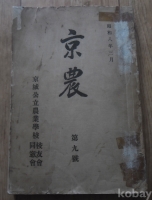 昭和八年三月
京農
第九號
京城公立農業學校
校友會
同窓會